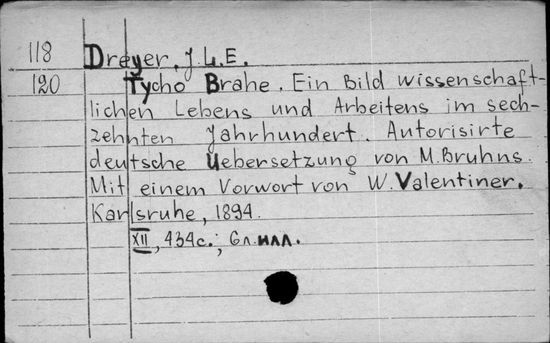 118 Dreyer, J.L.E.
120 Tycho Brahe. Ein Bild wissenschaft-
lichen Lebens und Arbeitens im sech-
zehnten Jahrhundert. Autorisirte
deutsche Uebersetzung von M. Bruhns.
Mit einem Vorwort von W. Valentiner.
Karlsruhe, 1894.
XII, 434с.; 6л.илл.